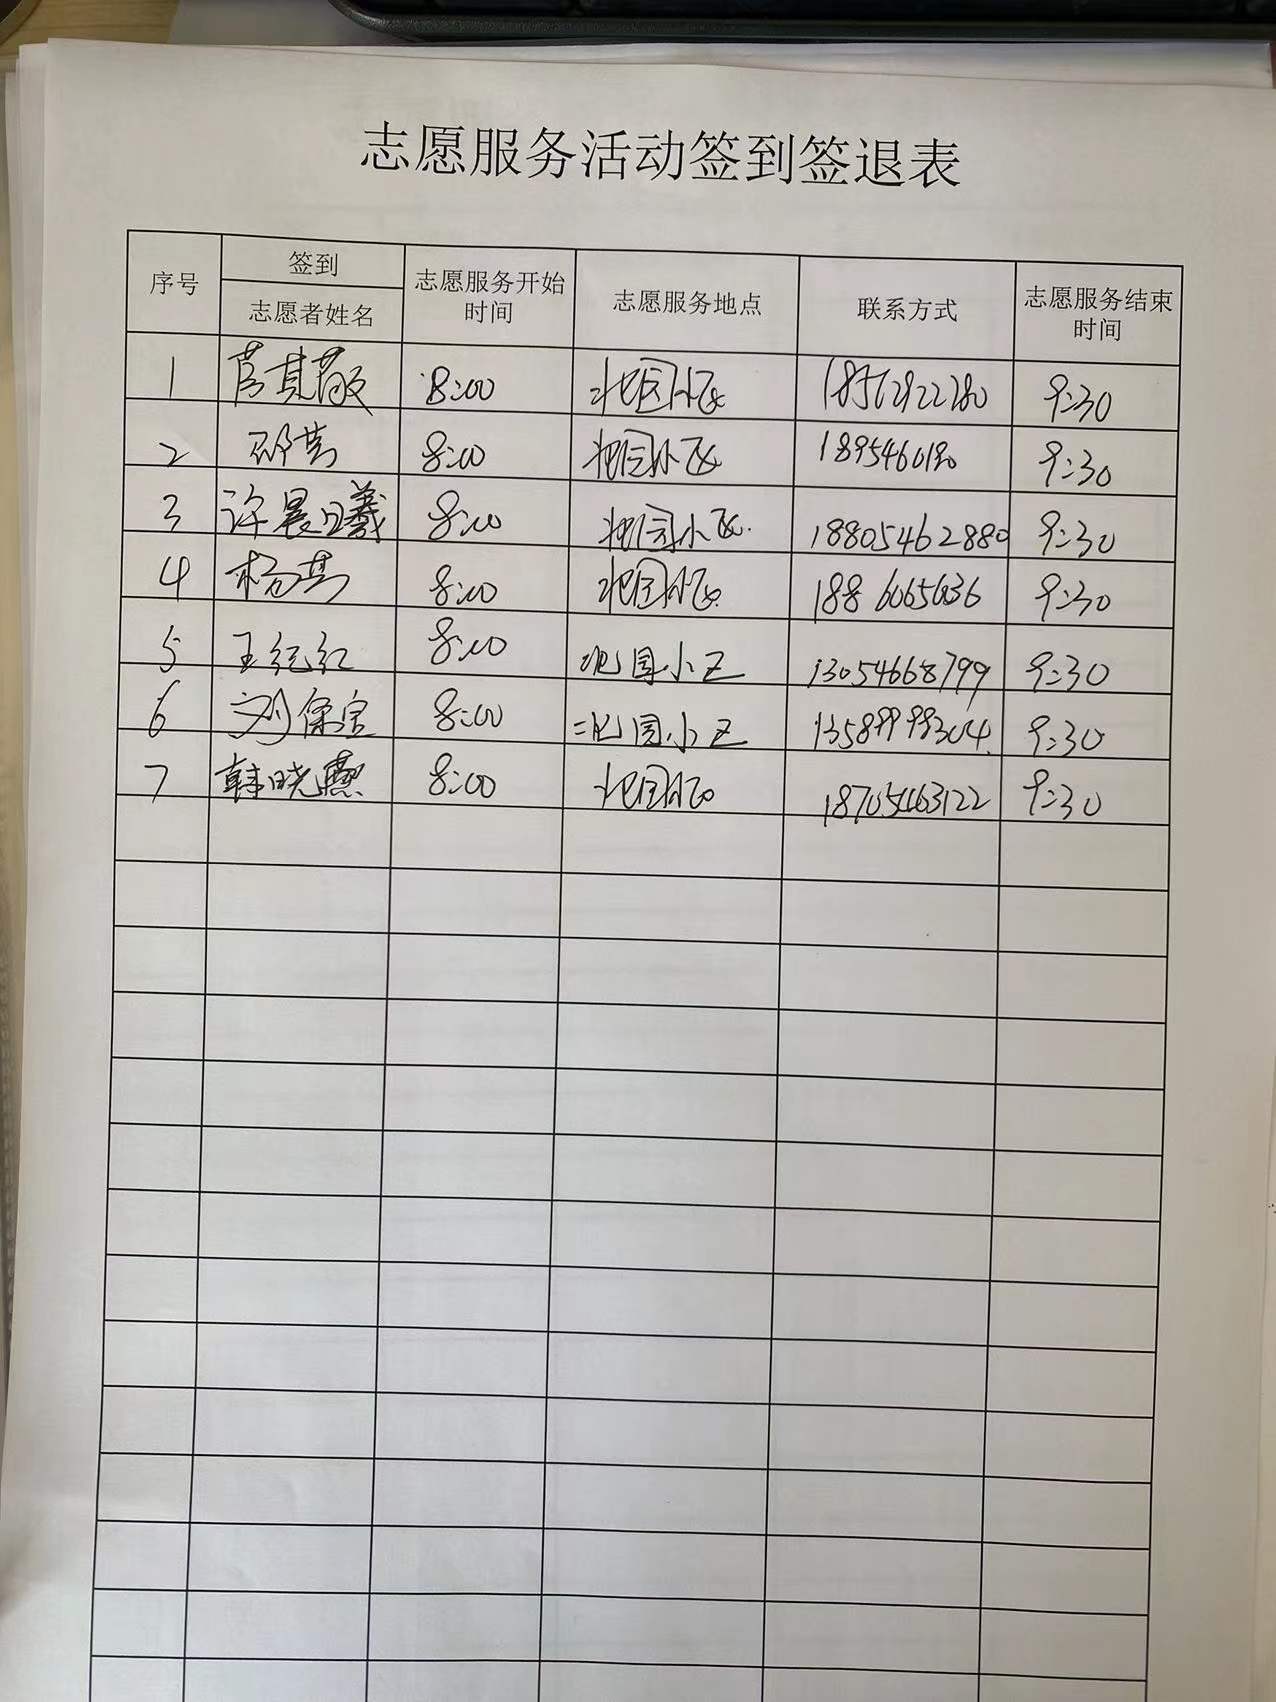 志愿服务活动签到签退表
序号 签到 志愿服务开始时间 志愿服务地点 联系方式 志愿服务结束时间
志愿者姓名
1 8:00 北园小区 9:30
2 邵芸 8:00 北园小区 9:30
3 许晨曦 8:00 北园小区 18805462880 9:30
4 杨芸 8:00 北园小区 9:30
5 王纪红 8:00 北园小区 13054668799 9:30
6 刘保宝 8:00 北园小区 9:30
7 韩晓燕 8:00 北园小区 18705463122 9:30